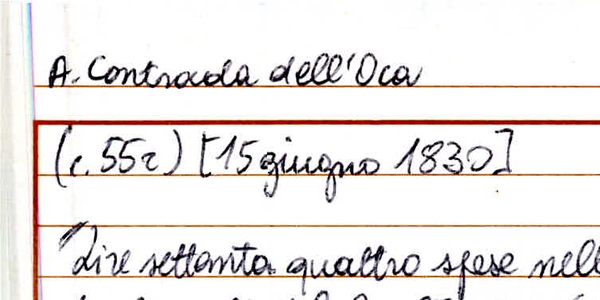 A. Contrada dell'Oca
(c. 55r) [15 giugno 1830]
"Lire settanta quattro spese nell